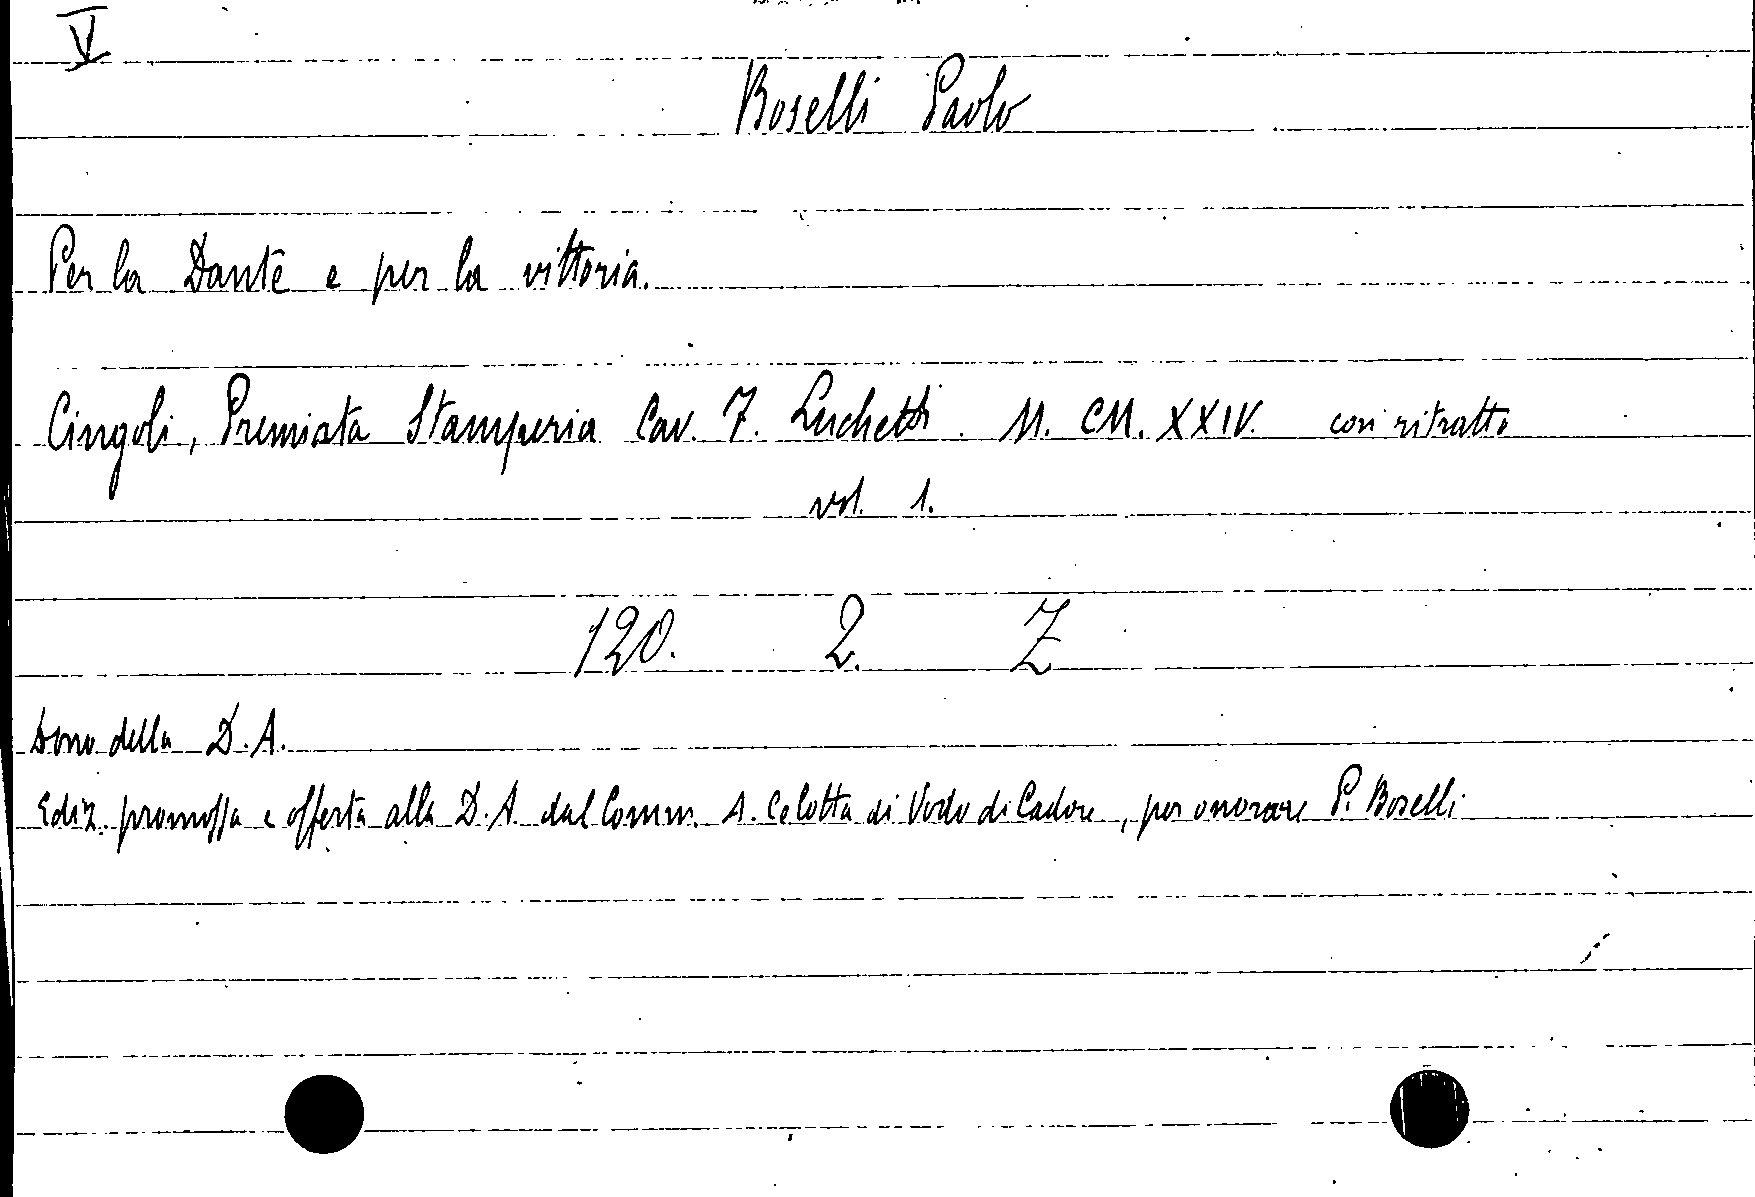 V
Boselli Paolo
Per la Dante e per la vittoria.
Cingoli, Premiata Stamperia Cav. F. Luchetti. M. CM. XXIV. con ritratto
vol. 1.
120. 2. Z
Dono della D.A.
Ediz. promossa e offerta alla D.A. dal Comm. A. Celotta di Vodo di Cadore, per onorare P. Boselli